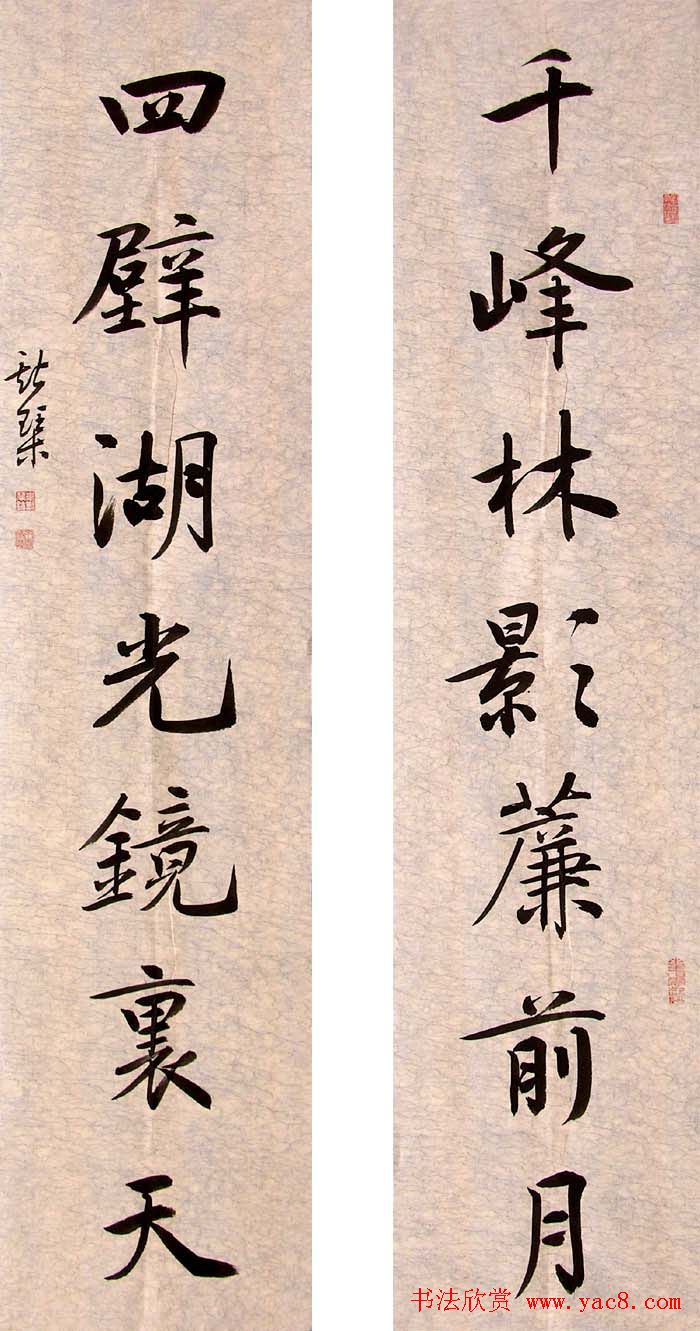 千峰林影簾前月
四壁湖光鏡裏天
书法欣赏 www.yac8.com